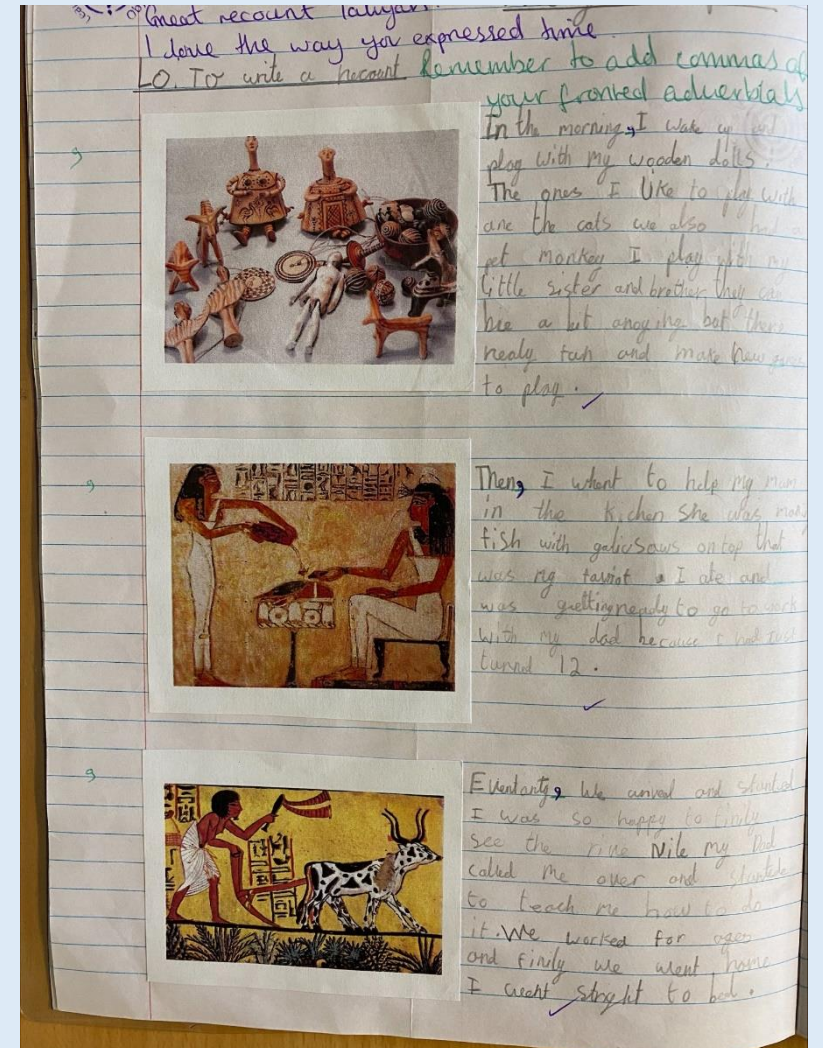 Great recount
I love the way you expressed time
LO. To write a recount. Remember to add commas af
your fronted adverbials
In the morning, I wake up and
play with my wooden dolls.
The ones I like to play with
are the cats we also had a
pet monkey I play with my
little sister and brother they can
bie a bit anoying but there
realy fun and make new games
to play.
Then, I whent to help my mum
in the kichen She was
fish with on top that
was my I ate and
was getting ready to go to work
with my dad because I had just
turned 12.
we arived and started
I was so happy to finly
see the rive Nile my Dad
called me over and
to teach me how to do
it. We worked for ages
and finily we went home
I went stright to bed.